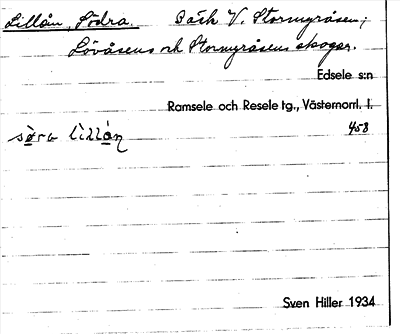 Lillån, Södra. Bäck V. Stormyråsen;
Lövåsens och Stormyråsens skogar.
Edsele s:n
Ramsele och Resele tg., Västernorrl. l.
458
Sven Hiller 1934